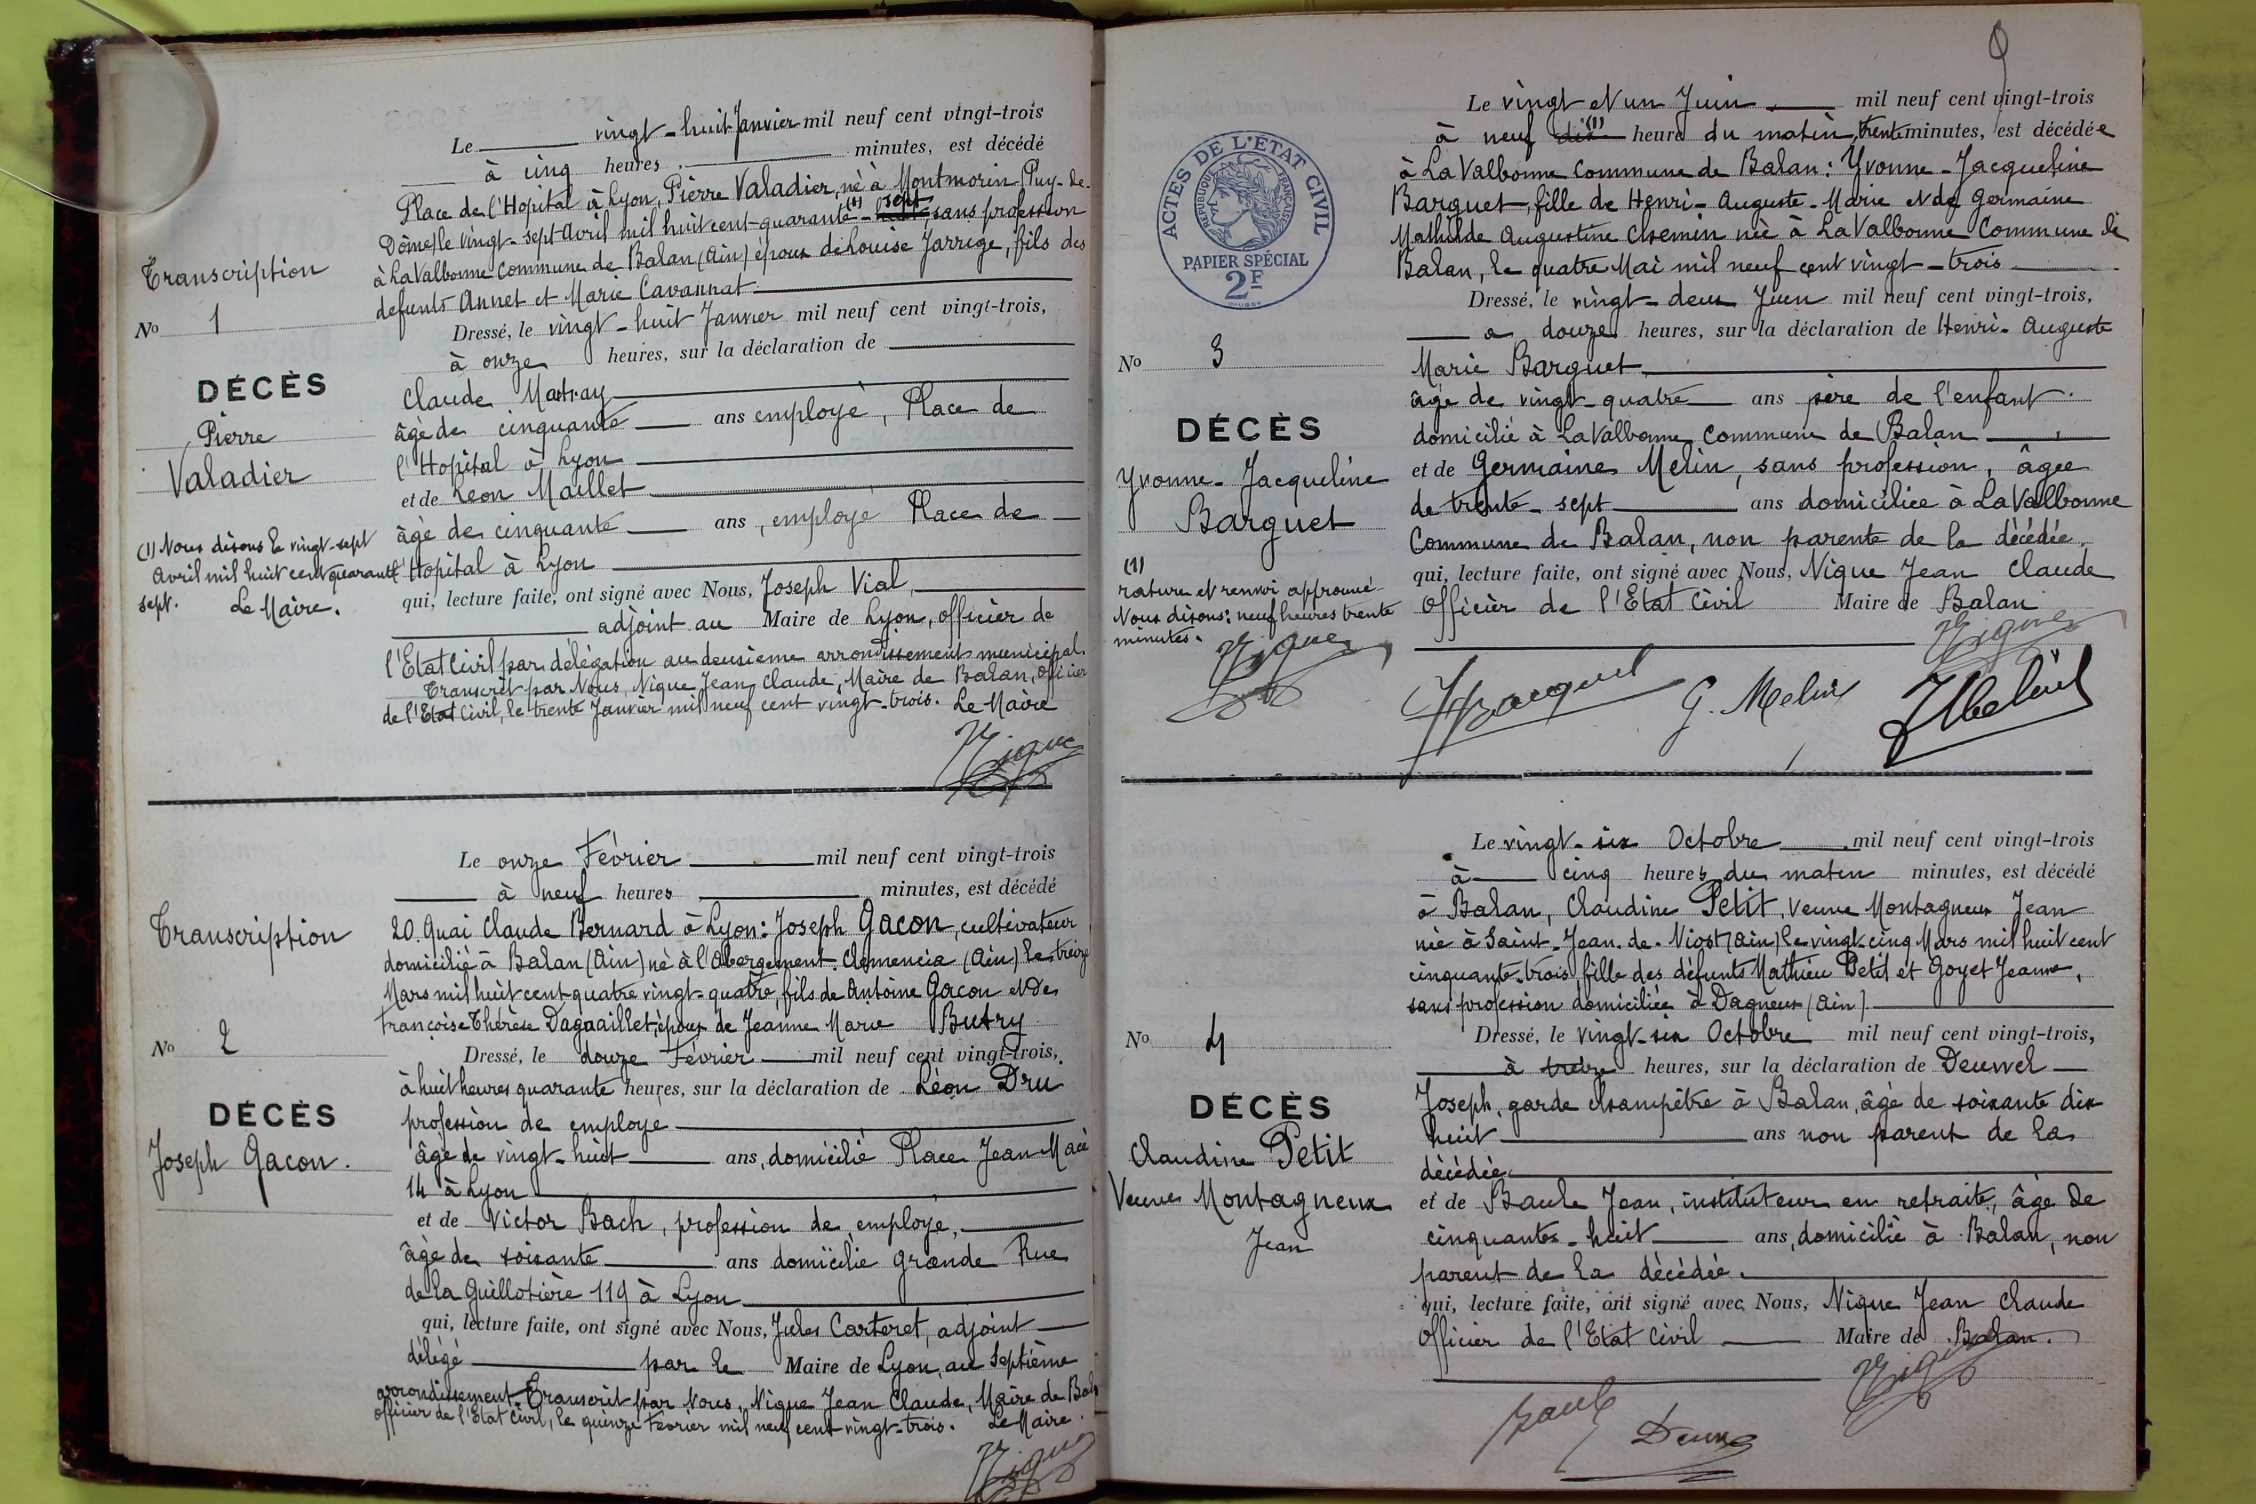 Le vingt-huit Janvier mil neuf cent vingt-trois
à cinq heures minutes, est décédé
Place de l'Hopital à Lyon, Pierre Valadier, né à Montmorin (Puy-de-
Dôme) le vingt-sept Avril mil huit cent quarante (1) sept, sans profession
à La Valbonne Commune de Balan (Ain) époux de Louise Jarrige, fils des
défunts Annet et Marie Cavannat
Transcription
No 1
DÉCÈS
Pierre
Valadier
(1) Nous disons le vingt-sept
Avril mil huit cent quarante
sept. Le Maire.
Dressé, le vingt-huit Janvier mil neuf cent vingt-trois,
à onze heures, sur la déclaration de
Claude Matray
âgé de cinquante ans employé, Place de
l'Hopital à Lyon
et de Léon Maillet
âgé de cinquante ans, employé Place de
l'Hopital à Lyon
qui, lecture faite, ont signé avec Nous, Joseph Vial,
adjoint au Maire de Lyon, officier de
l'Etat Civil par délégation au deusième arrondissement municipal.
Transcrit par Nous, Nique Jean Claude, Maire de Balan, Officier
de l'Etat Civil, le trente Janvier mil neuf cent vingt-trois. Le Maire
Nique
Le onze Février mil neuf cent vingt-trois
à neuf heures minutes, est décédé
20 Quai Claude Bernard à Lyon: Joseph Gacon, cultivateur
domicilié à Balan (Ain) né à l'Abergement-Clemencia (Ain) le treize
Mars mil huit cent quatre vingt-quatre, fils de Antoine Gacon et de
Françoise Thérèse Daguaillet, époux de Jeanne Marie Butry
Transcription
No 2
DÉCÈS
Joseph Gacon.
Dressé, le douze Février mil neuf cent vingt-trois,
à huit heures quarante heures, sur la déclaration de Léon Dru
profession de employé
âgé de vingt-huit ans, domicilié Place Jean Macé
14 à Lyon
et de Victor Bach, profession de employé,
âgé de soixante ans domicilié grande Rue
de la Guillotière 119 à Lyon
qui, lecture faite, ont signé avec Nous, Jules Carteret, adjoint
délégé par le Maire de Lyon, au Septième
arrondissement. Transcrit par Nous, Nique Jean Claude, Maire de Balan
Officier de l'Etat Civil, le quinze Février mil neuf cent vingt-trois. Le Maire.
Nique
ACTES DE L'ETAT CIVIL
REPUBLIQUE FRANÇAISE
PAPIER SPÉCIAL
2F
Le vingt et un Juin mil neuf cent vingt-trois
à neuf dix (1) heure du matin, trente minutes, est décédée
à La Valbonne Commune de Balan: Yvonne-Jacqueline
Barguet, fille de Henri-Auguste-Marie et de Germaine
Mathilde Augustine Chemin née à La Valbonne Commune de
Balan, le quatre Mai mil neuf cent vingt-trois
No 3
DÉCÈS
Yvonne-Jacqueline
Barguet
(1)
rature et renvoi approuvé
Nous disons: neuf heures trente
minutes.
Nique
Dressé, le vingt-deux Juin mil neuf cent vingt-trois,
à douze heures, sur la déclaration de Henri-Auguste
Marie Barguet
âgé de vingt-quatre ans père de l'enfant
domicilié à La Valbonne Commune de Balan
et de Germaine Melin, sans profession, âgée
de trente-sept ans domiciliée à La Valbonne
Commune de Balan, non parente de la décédée,
qui, lecture faite, ont signé avec Nous, Nique Jean Claude
Officier de l'Etat Civil Maire de Balan
Nique
HBarguet G. Melin
Le vingt-six Octobre mil neuf cent vingt-trois
à cinq heures du matin minutes, est décédé
à Balan, Claudine Petit, veuve Montagneux Jean
née à Saint-Jean-de-Niost (Ain) le vingt-cinq Mars mil huit cent
cinquante-trois, fille des défunts Mathieu Petit et Goyet Jeanne,
sans profession domiciliée à Dagneux (Ain)
No 4
DÉCÈS
Claudine Petit
Veuve Montagneux
Jean
Dressé, le vingt-six Octobre mil neuf cent vingt-trois,
à treize heures, sur la déclaration de Deuvvel
Joseph, garde champêtre à Balan, âgé de soixante dix
huit ans non parent de la
décédée
et de Baule Jean, instituteur en retraite, âgé de
cinquante-huit ans, domicilié à Balan, non
parent de la décédée.
qui, lecture faite, ont signé avec Nous, Nique Jean Claude
Officier de l'Etat Civil Maire de Balan.
Nique
Baule